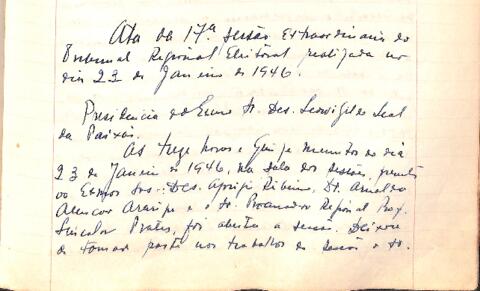 Ata da 17ª sessão extraordinaria do
Tribunal Regional Eleitoral realizada no
dia 23 de Janeiro de 1946.
Presidencia do Exmo Sr. Des. Leovigildo Leal
da Paixão.
As treze horas e quinze minutos do dia
23 de Janeiro de 1946, na sala das sessões, presentes
os Exmos Srs. Des. Aprigio Ribeiro, Dr. Arnaldo
Alencar Araripe e o Sr. Procurador Regional Prof.
Lincoln Prates, foi aberta a sessão. Deixou
de tomar parte nos trabalhos da sessão o Sr.